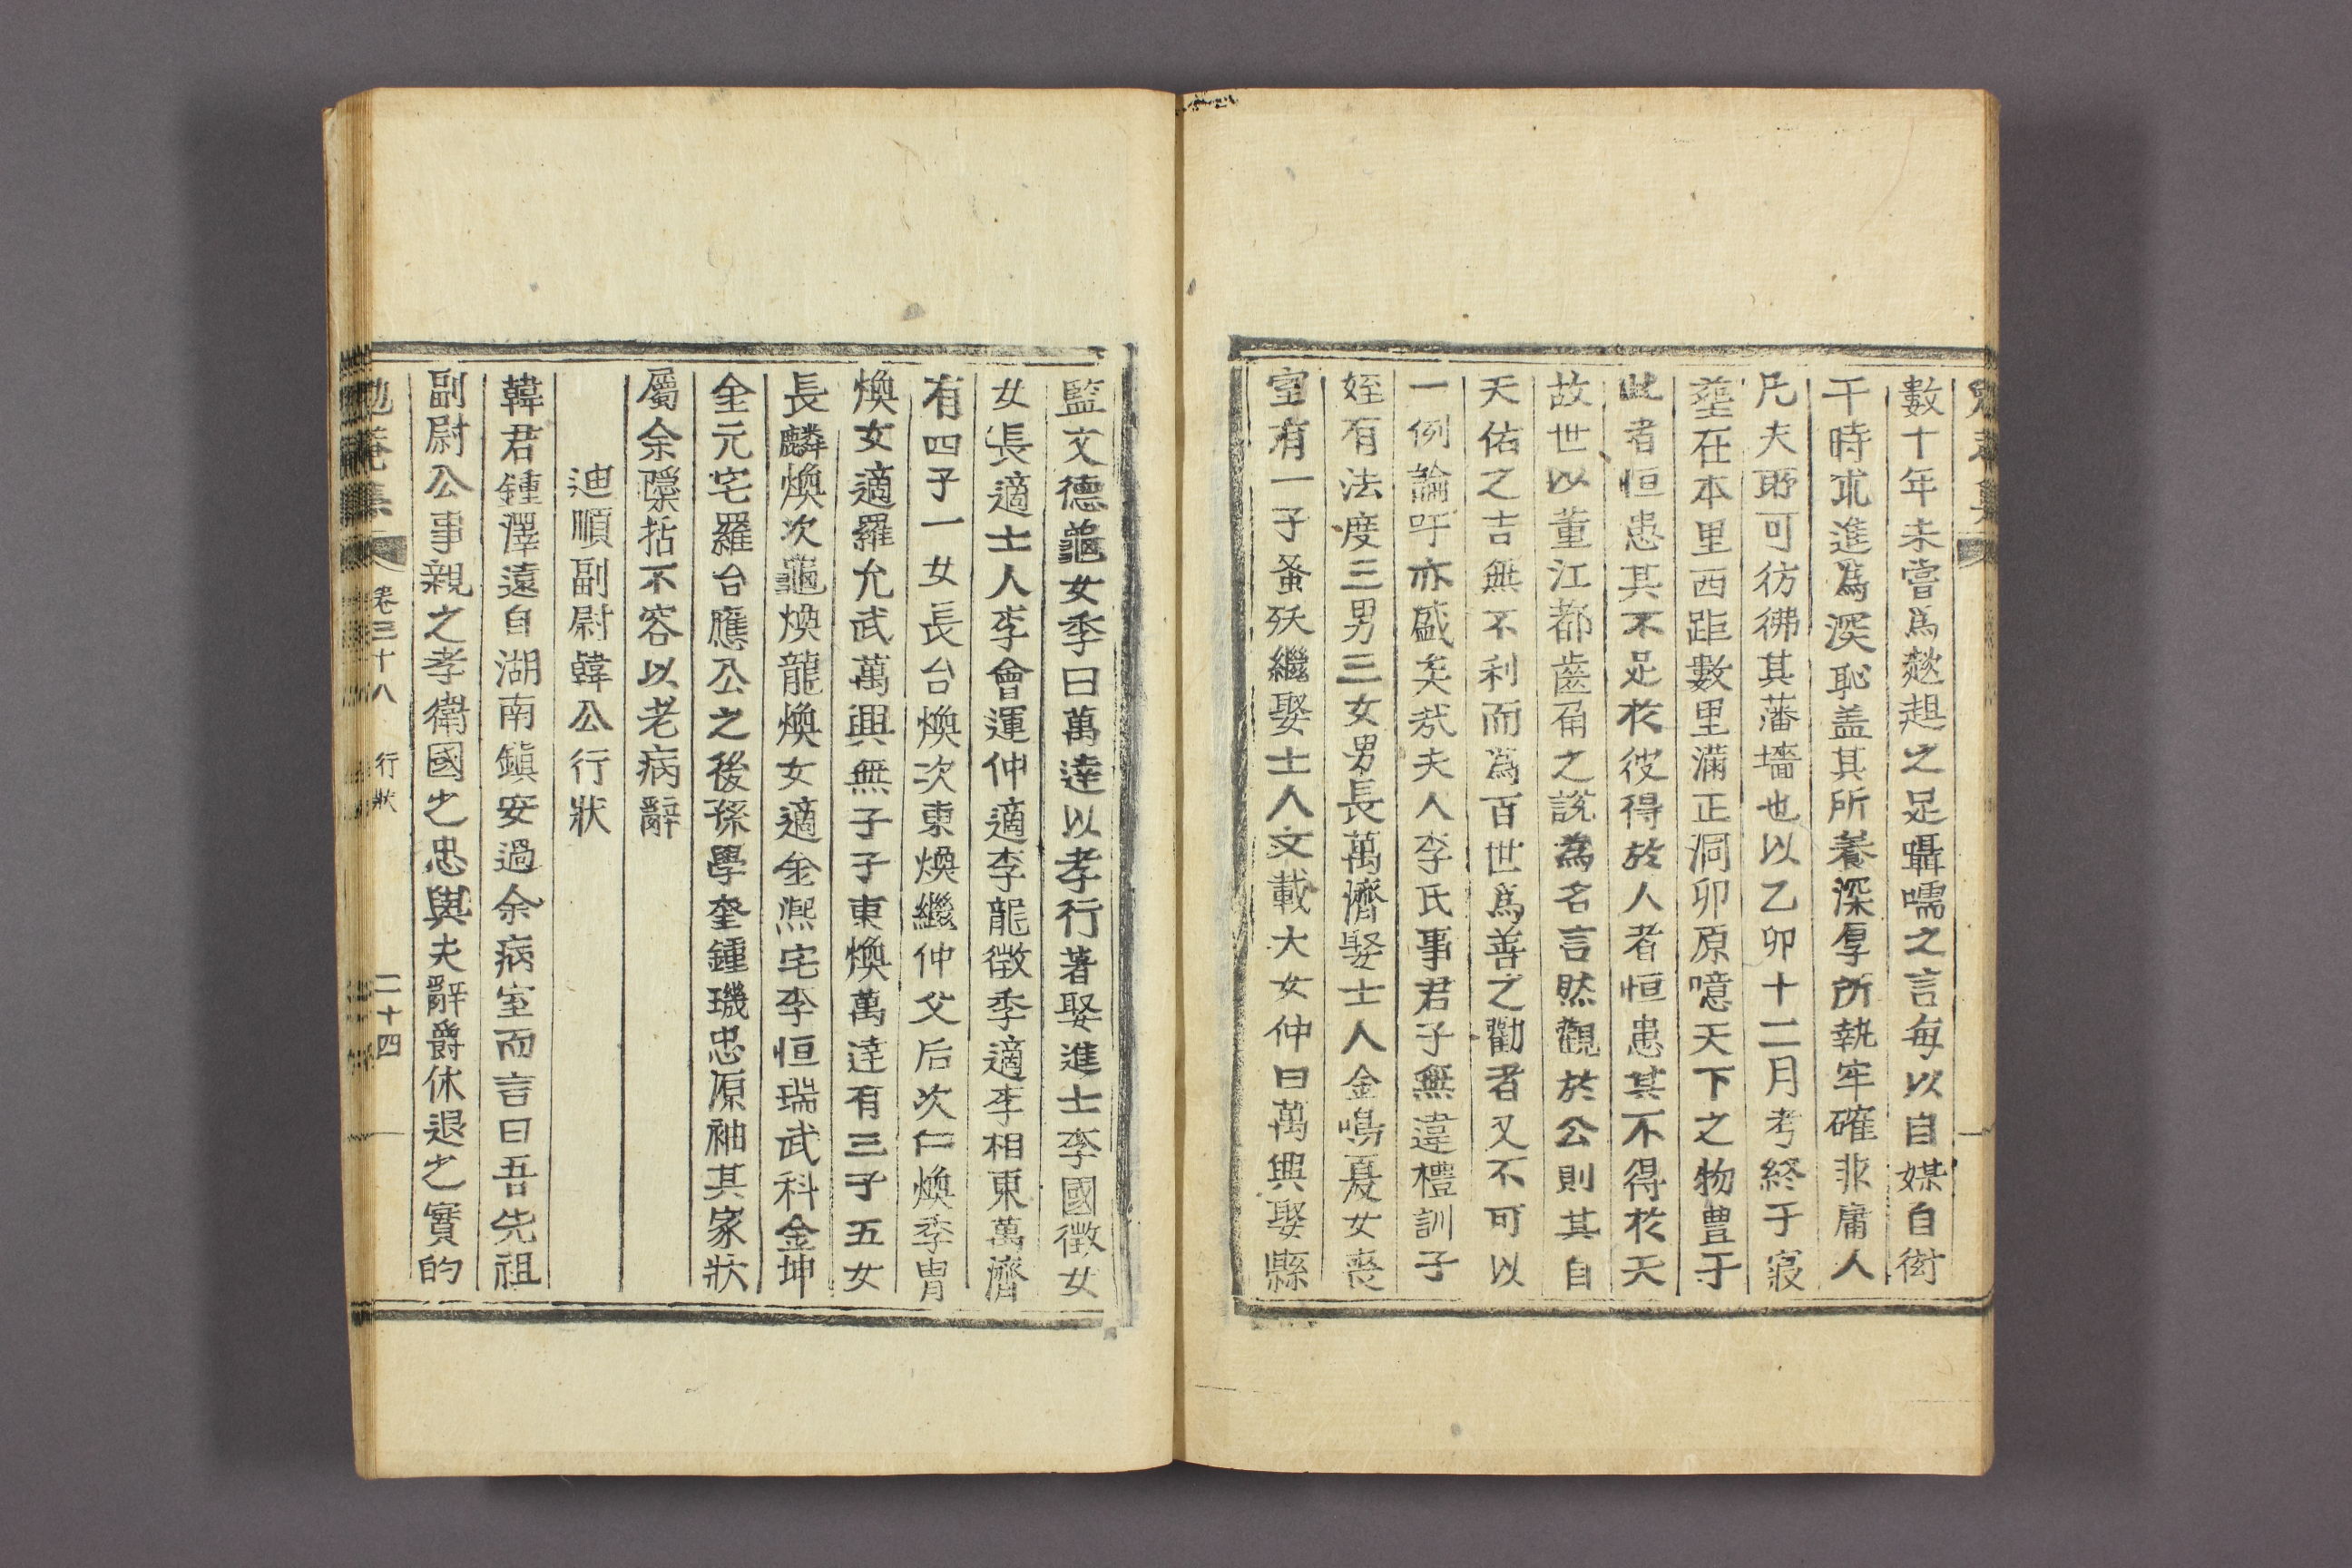 數十年未嘗爲趑趄之足囁嚅之言每以自媒自衒
干時求進爲深恥盖其所養深厚所執牢確非庸人
凡夫所可彷彿其藩墻也以乙卯十二月考終于寢
塟在本里西距數里滿正洞卯原噫天下之物豊于
此者恒患其不足於彼得於人者恒患其不得於天
故世以董江都齒角之說為名言然觀於公則其自
天佑之吉無不利而爲百世爲善之勸者又不可以
一例論吁亦盛矣㢤夫人李氏事君子無違禮訓子
姪有法度三男三女男長萬濟娶士人金鳴夏女喪
室有一子蚤殀繼娶士人文載大女仲曰萬興娶縣
監文德龜女季曰萬達以孝行著娶進士李國徵女
女長適士人李會運仲適李龍徵季適李相東萬濟
有四子一女長台煥次東煥繼仲父后次仁煥季胄
煥女適羅允武萬興無子子東煥萬達有三子五女
長麟煥次龜煥龍煥女適金凞宅李恒瑞武科金坤
金元宅羅台應公之後孫學奎鍾璣忠原袖其家狀
屬余隱括不容以老病辭
迪順副尉韓公行狀
韓君鍾澤遠自湖南鎭安過余病室而言曰吾先祖
副尉公事親之孝衛國之忠與夫辭爵休退之實的
勉菴集 卷三十八 行狀 二十四